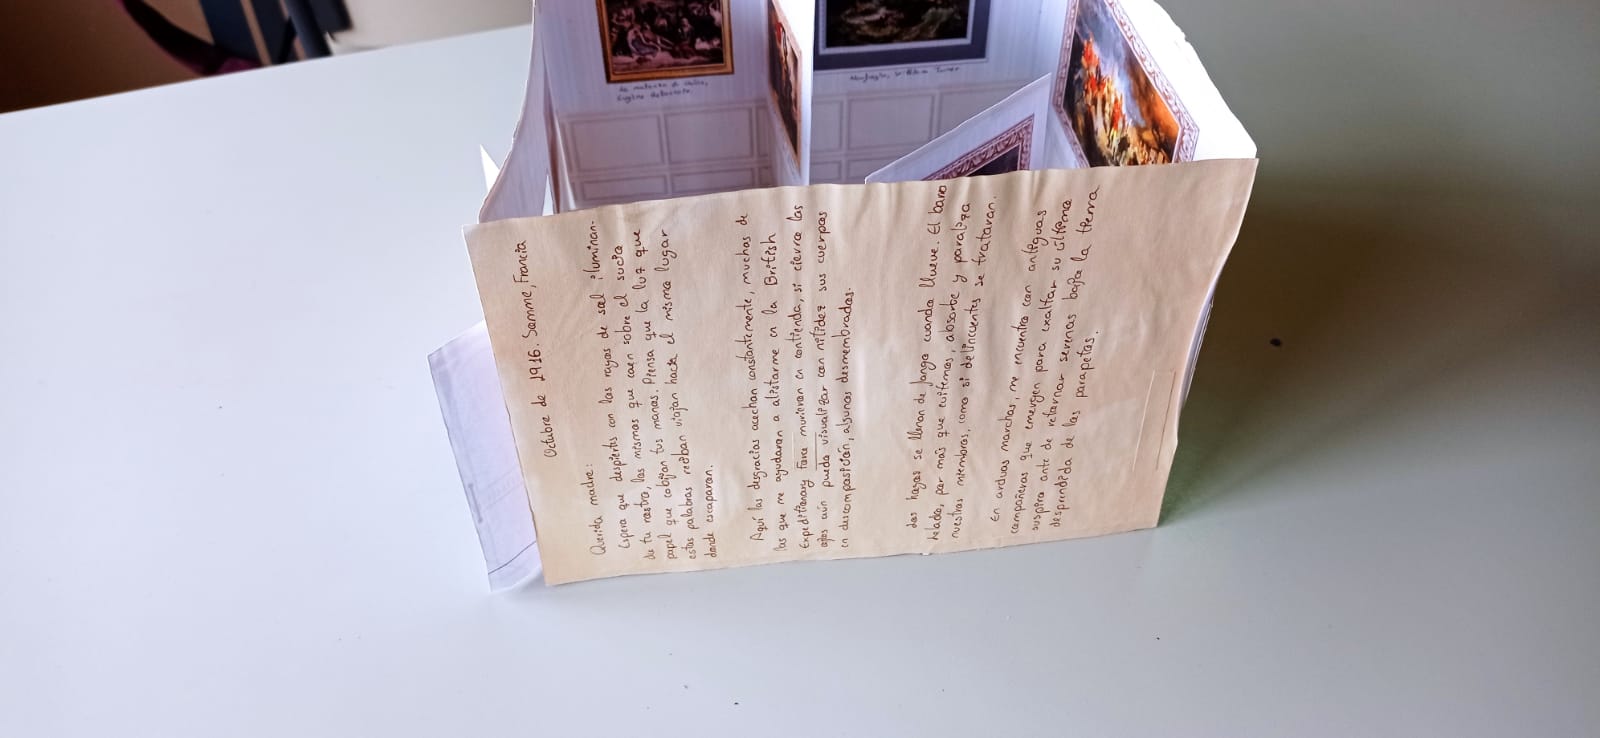 Octubre de 1916. Somme, Francia
Querida madre:
Espero que despiertes con los rayos de sol iluminan-
do tu rostro, los mismos que caen sobre el sucio
papel que cobijan tus manos. Piensa que la luz que
estas palabras reciban viajan hacia el mismo lugar
donde escaparan.
Aquí las degracias acechan constantemente, muchos de
los que me ayudaron a alistarme en la British
Expeditionary Force murieron en contienda, si cierro los
ojos aún puedo visualizar con nitidez sus cuerpos
en descomposición, algunos desmembrados.
Las hoyos se llenan de fango cuando llueve. El barro
helado, por más que evitemos, absorbe y paraliza
nuestros miembros, como si delincuentes se trataran.
En arduas marchas, me encuentro con antiguos
compañeros que emergen para exaltar su último
suspiro ante de retornar serenos bajo la tierra
desprendida de los parapetos.
La matanza de Quíos,
Eugène Delacroix.
Naufragio, William Turner